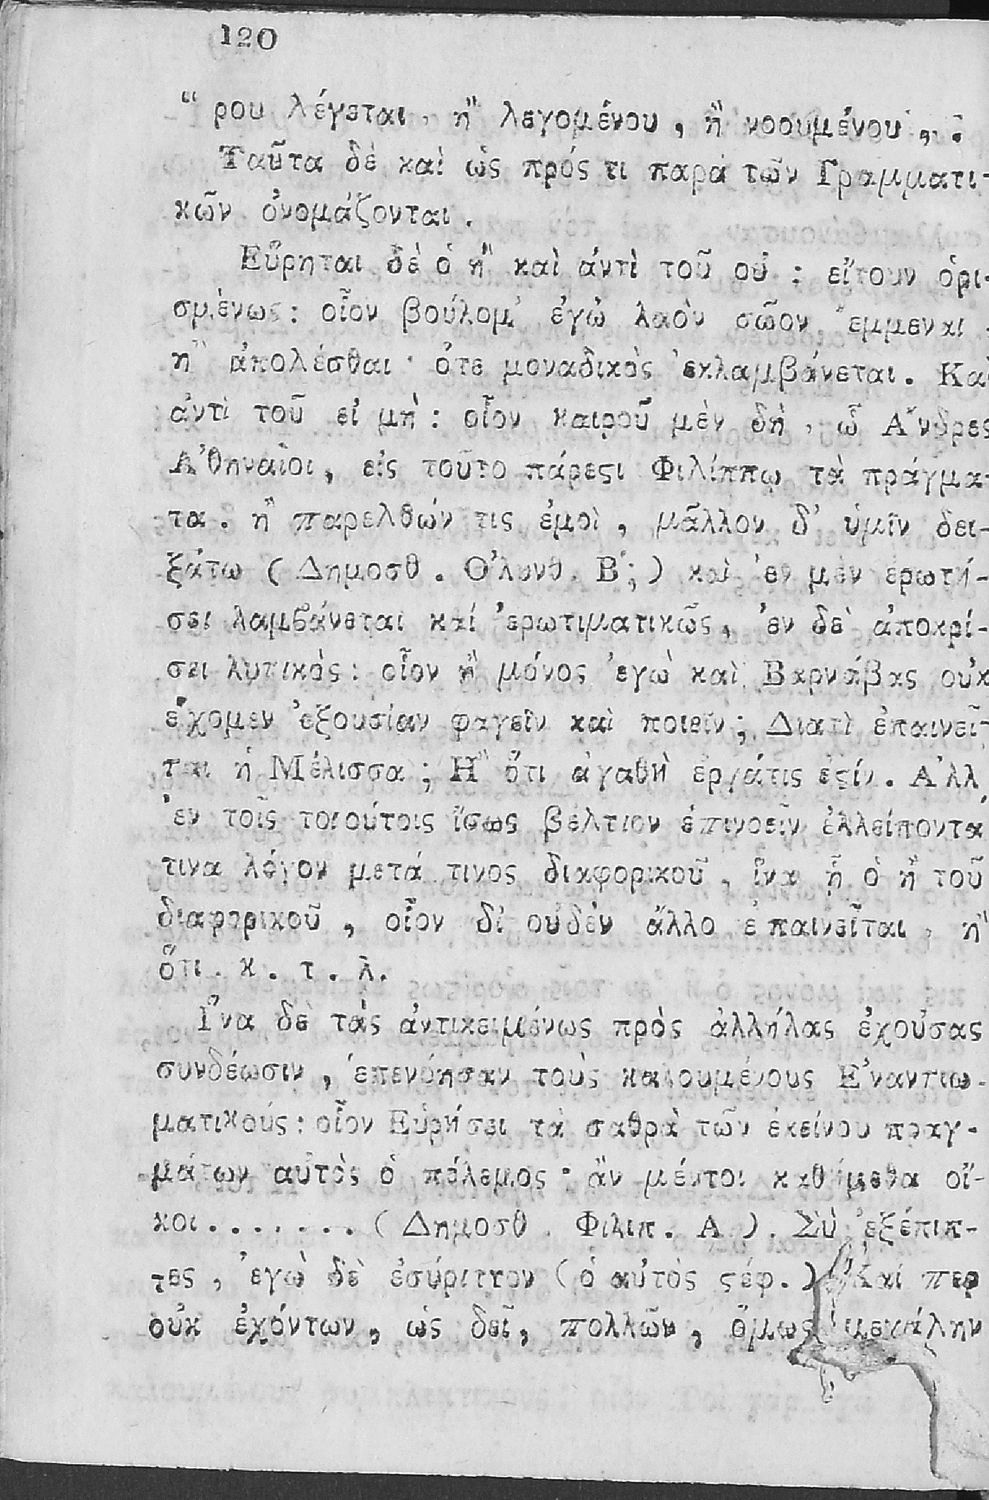 120
“ ρου λέγεται, ἢ λεγομένου, ἢ νοουμένου ,, :
Ταῦτα δὲ καὶ ὡς πρός τι παρὰ τῶν Γραμματι-
κῶν ὀνομάζονται.
Εὕρηται δὲ ὁ ἢ καὶ ἀντὶ τοῦ οὐ : εἴτουν ὁρι-
σμένως: οἷον βούλομ’ ἐγὼ λαὸν σῶον ἔμμεναι
ἢ ἀπολέσθαι· ὅτε μοναδικὸς ἐκλαμβάνεται. Καὶ
ἀντὶ τοῦ εἰ μή: οἷον καιροῦ μὲν δὴ, ὦ Ἄνδρες
Ἀθηναῖοι, εἰς τοῦτο πάρεϛι Φιλίππῳ τὰ πράγμα-
τα. ἢ παρελθών τις ἐμοὶ, μᾶλλον δ’ ὑμῖν δει-
ξάτω (Δημοσθ. Ὀλυνθ. Β΄;) καὶ ἐν μὲν ἐρωτή-
σει λαμβάνεται καί ἐρωτιματικῶς, ἐν δὲ ἀποκρί-
σει λυτικός: οἷον ἢ μόνος ἐγὼ καὶ Βαρνάβας οὐκ
εἴχομεν ἐξουσίαν φαγεῖν καὶ ποιεῖν; Διατὶ ἐπαινεῖ-
ται ἡ Μέλισσα; Ἢ ὅτι ἀγαθὴ ἐργάτις ἐϛίν. Ἀλλ’
ἐν τοῖς τοιούτοις ἴσως βέλτιον ἐπινοεῖν ἐλλείποντα
τινα λόγον μετά τινος διαφορικοῦ, ἵνα ᾖ ὁ ἢ τοῦ
διαφορικοῦ, οἷον δι’ οὐδὲν ἄλλο ἐπαινεῖται, ἢ
ὅτι. κ. τ. λ.
Ἵνα δὲ τὰς ἀντικειμένως πρὸς ἀλλήλας ἐχούσας
συνδέωσιν, ἐπενόησαν τοὺς καλουμένους Ἐναντιω-
ματικούς: οἷον Εὑρήσει τὰ σαθρὰ τῶν ἐκείνου πραγ-
μάτων αὐτὸς ὁ πόλεμος· ἂν μέντοι καθήμεθα οἴ-
κοι....... (Δημοσθ. Φιλιπ. Α). Σὺ ἐξέπιπ-
τες, ἐγὼ δὲ ἐσύριττον (ὁ αὐτὸς ϛέφ.) Καί περ
οὐκ ἐχόντων, ὡς δεῖ, πολλῶν, ὅμως μεγάλην